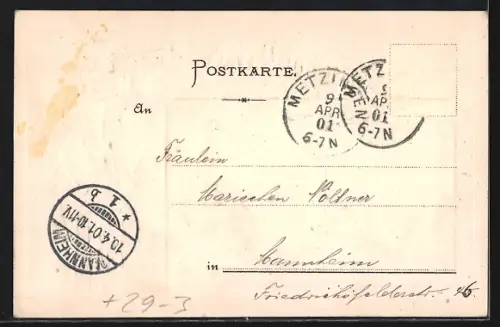 POSTKARTE.
METZINGEN
9
APR
01
6-7N
METZ
9
AP
01
6-7N
An
Fräulein
Mariechen Vöttner
MANNHEIM
10.4.01.10-11V.
* 1 b
in Mannheim
Friedrichsfelderstr. 46
+29-3